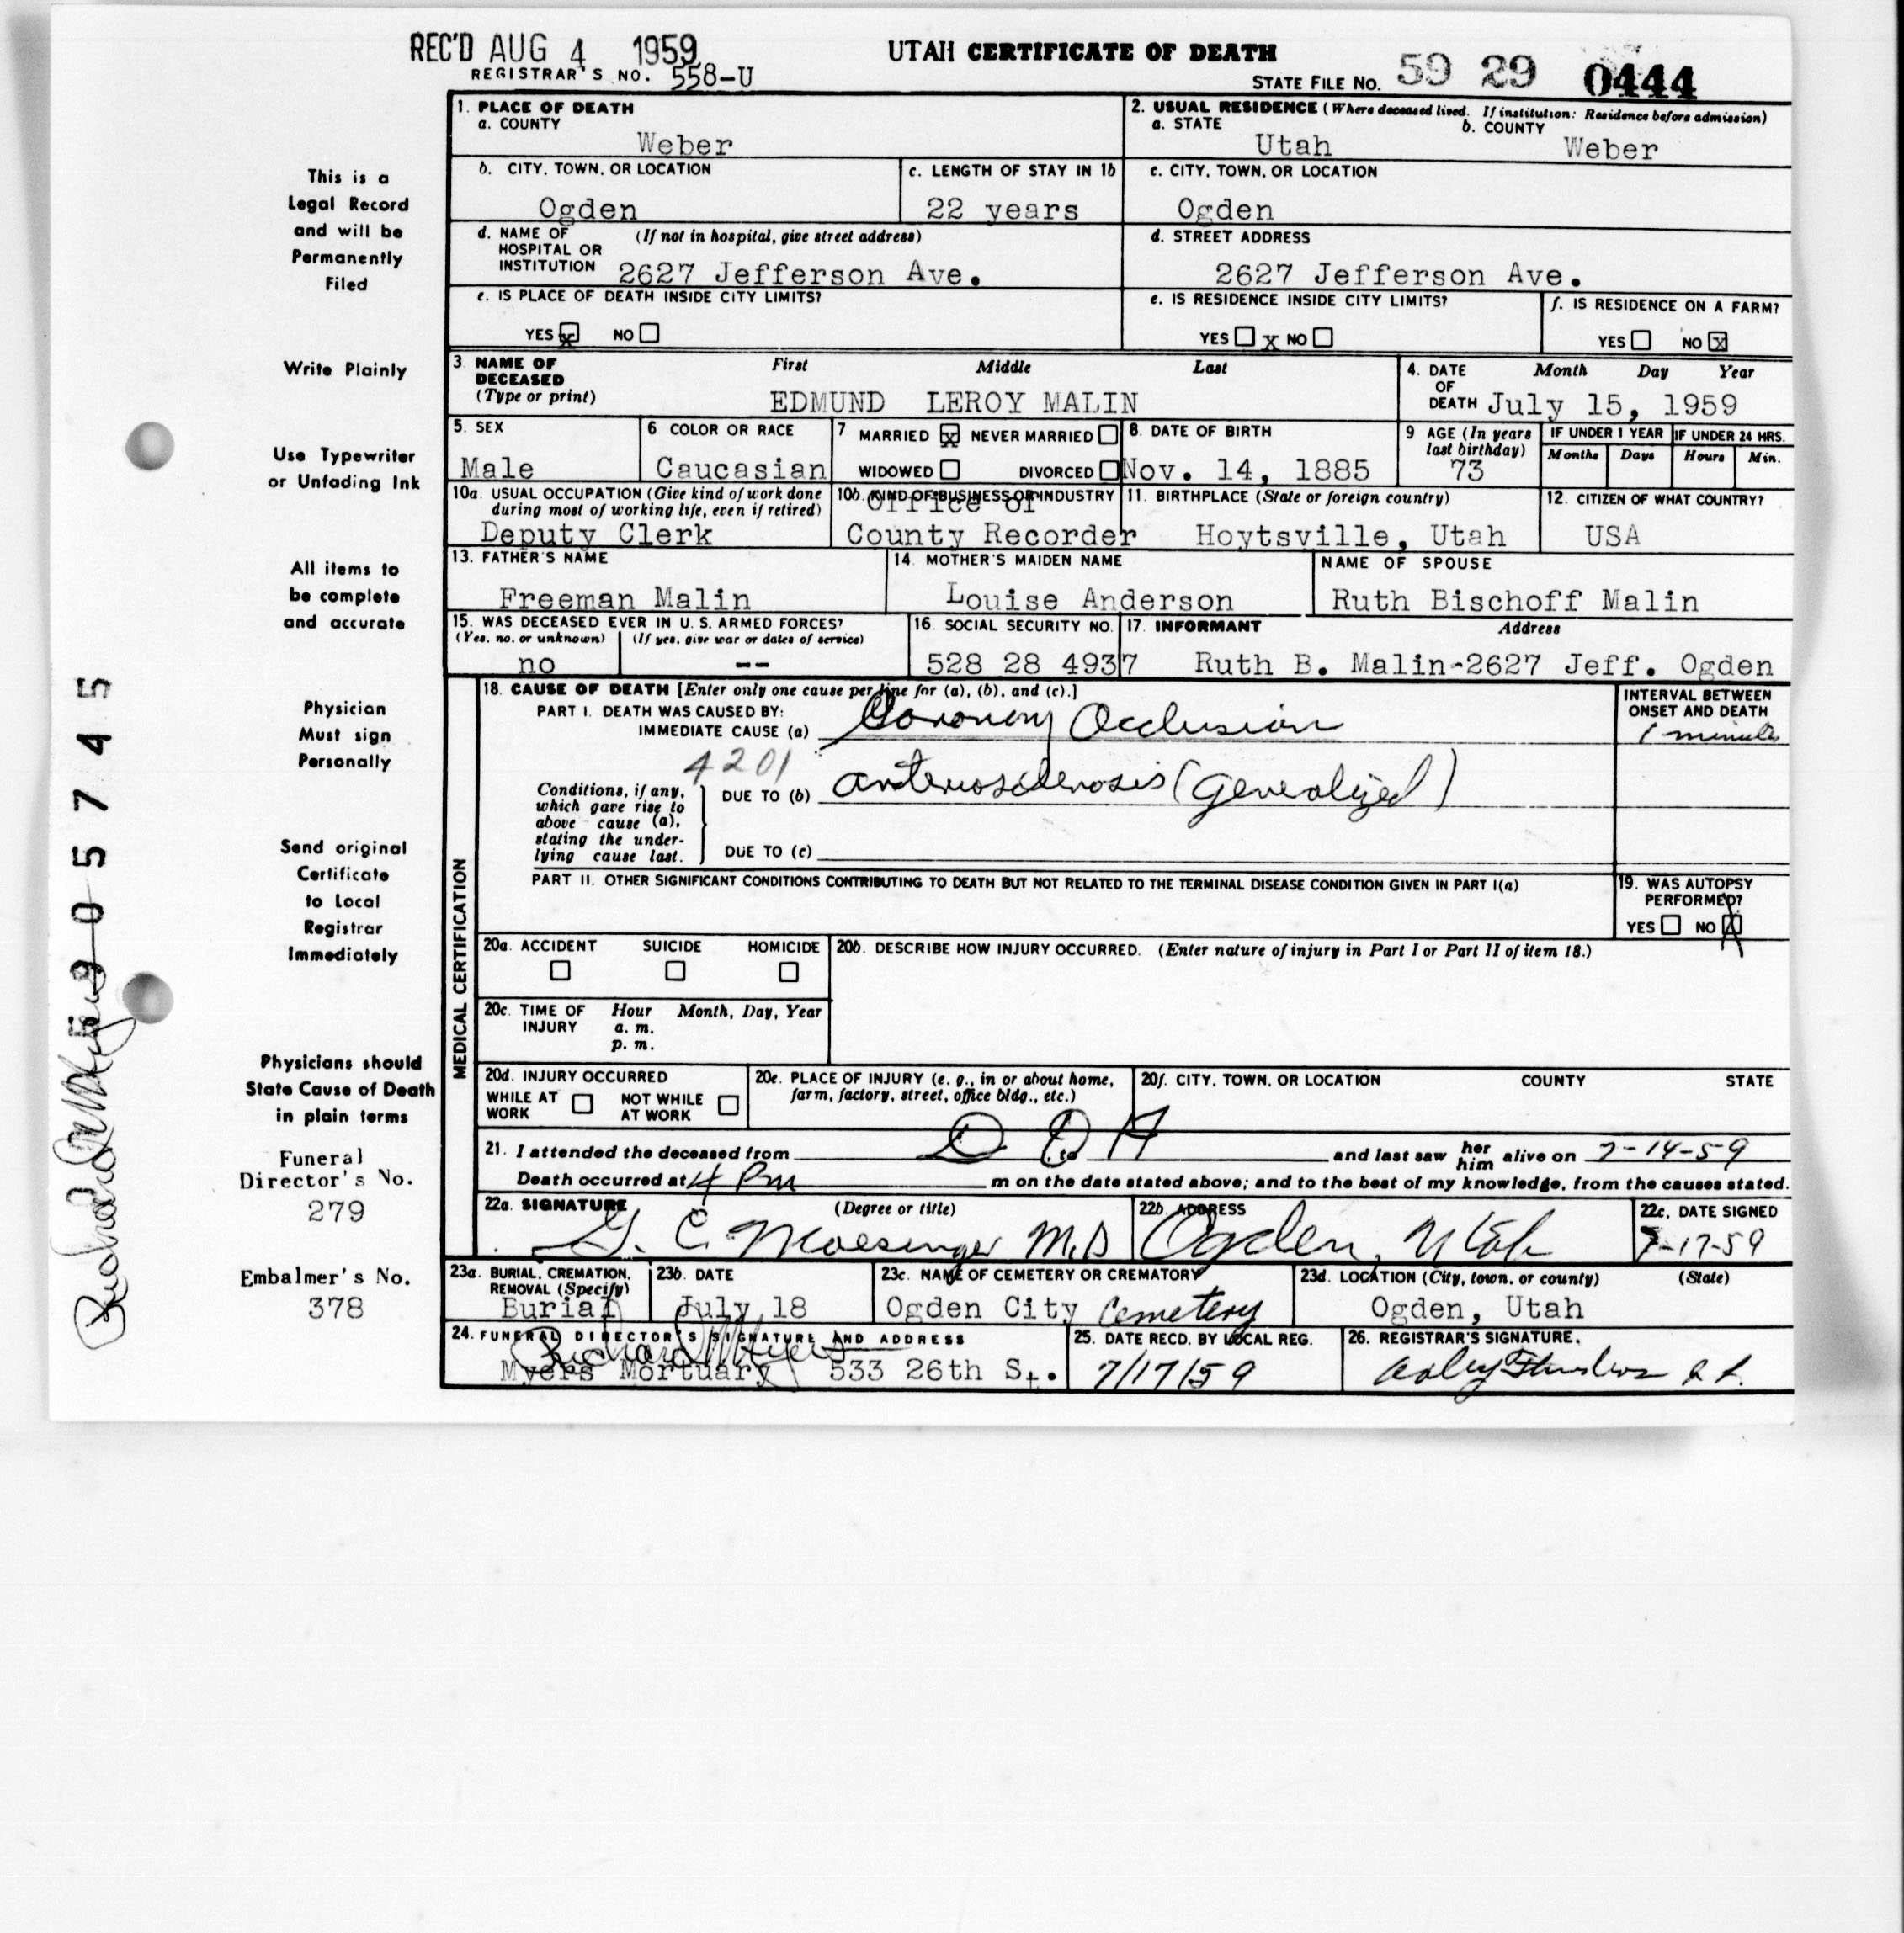 REC'D AUG 4 1959
REGISTRAR'S NO. 558-U
UTAH CERTIFICATE OF DEATH
STATE FILE NO. 59 29 0444
1. PLACE OF DEATH
a. COUNTY
Weber
2. USUAL RESIDENCE (Where deceased lived. If institution: Residence before admission)
a. STATE
Utah
b. COUNTY
Weber
b. CITY, TOWN, OR LOCATION
Ogden
c. LENGTH OF STAY IN 1b
22 years
c. CITY, TOWN, OR LOCATION
Ogden
d. NAME OF HOSPITAL OR INSTITUTION (If not in hospital, give street address)
2627 Jefferson Ave.
d. STREET ADDRESS
2627 Jefferson Ave.
e. IS PLACE OF DEATH INSIDE CITY LIMITS?
YES x NO
e. IS RESIDENCE INSIDE CITY LIMITS?
YES x NO
f. IS RESIDENCE ON A FARM?
YES NO x
3. NAME OF DECEASED (Type or print)
First Middle Last
EDMUND LEROY MALIN
4. DATE OF DEATH
Month Day Year
July 15, 1959
5. SEX
Male
6 COLOR OR RACE
Caucasian
7 MARRIED x NEVER MARRIED
WIDOWED DIVORCED
8. DATE OF BIRTH
Nov. 14, 1885
9 AGE (In years last birthday)
73
IF UNDER 1 YEAR
Months Days
IF UNDER 24 HRS.
Hours Min.
10a. USUAL OCCUPATION (Give kind of work done during most of working life, even if retired)
Deputy Clerk
10b. KIND OF BUSINESS OR INDUSTRY
Office of
County Recorder
11. BIRTHPLACE (State or foreign country)
Hoytsville, Utah
12. CITIZEN OF WHAT COUNTRY?
USA
13. FATHER'S NAME
Freeman Malin
14. MOTHER'S MAIDEN NAME
Louise Anderson
NAME OF SPOUSE
Ruth Bischoff Malin
15. WAS DECEASED EVER IN U. S. ARMED FORCES?
(Yes, no, or unknown) (If yes, give war or dates of service)
no --
16. SOCIAL SECURITY NO.
528 28 4937
17. INFORMANT Address
Ruth B. Malin-2627 Jeff. Ogden
MEDICAL CERTIFICATION
18. CAUSE OF DEATH [Enter only one cause per line for (a), (b), and (c).]
PART I. DEATH WAS CAUSED BY:
IMMEDIATE CAUSE (a) Coronary Occlusion
INTERVAL BETWEEN ONSET AND DEATH
1 minute
4201
Conditions, if any, which gave rise to above cause (a), stating the underlying cause last.
DUE TO (b) arteriosclerosis (generalized)
DUE TO (c)
PART II. OTHER SIGNIFICANT CONDITIONS CONTRIBUTING TO DEATH BUT NOT RELATED TO THE TERMINAL DISEASE CONDITION GIVEN IN PART I(a)
19. WAS AUTOPSY PERFORMED?
YES NO X
20a. ACCIDENT SUICIDE HOMICIDE
20b. DESCRIBE HOW INJURY OCCURRED. (Enter nature of injury in Part I or Part II of item 18.)
20c. TIME OF INJURY
Hour Month, Day, Year
a. m.
p. m.
20d. INJURY OCCURRED
WHILE AT WORK NOT WHILE AT WORK
20e. PLACE OF INJURY (e. g., in or about home, farm, factory, street, office bldg., etc.)
20f. CITY, TOWN, OR LOCATION COUNTY STATE
21. I attended the deceased from to and last saw her him alive on 7-14-59
Death occurred at 4 Pm m on the date stated above; and to the best of my knowledge, from the causes stated.
22a. SIGNATURE (Degree or title)
G. C. Moesinger M.D
22b. ADDRESS
Ogden, Utah
22c. DATE SIGNED
7-17-59
23a. BURIAL, CREMATION, REMOVAL (Specify)
Burial
23b. DATE
July 18
23c. NAME OF CEMETERY OR CREMATORY
Ogden City Cemetery
23d. LOCATION (City, town, or county) (State)
Ogden, Utah
24. FUNERAL DIRECTOR'S SIGNATURE AND ADDRESS
Richard Myers
Myers Mortuary 533 26th St.
25. DATE RECD. BY LOCAL REG.
7/17/59
26. REGISTRAR'S SIGNATURE.
This is a
Legal Record
and will be
Permanently
Filed
Write Plainly
Use Typewriter
or Unfading Ink
All items to
be complete
and accurate
Physician
Must sign
Personally
Send original
Certificate
to Local
Registrar
Immediately
Physicians should
State Cause of Death
in plain terms
Funeral
Director's No.
279
Embalmer's No.
378